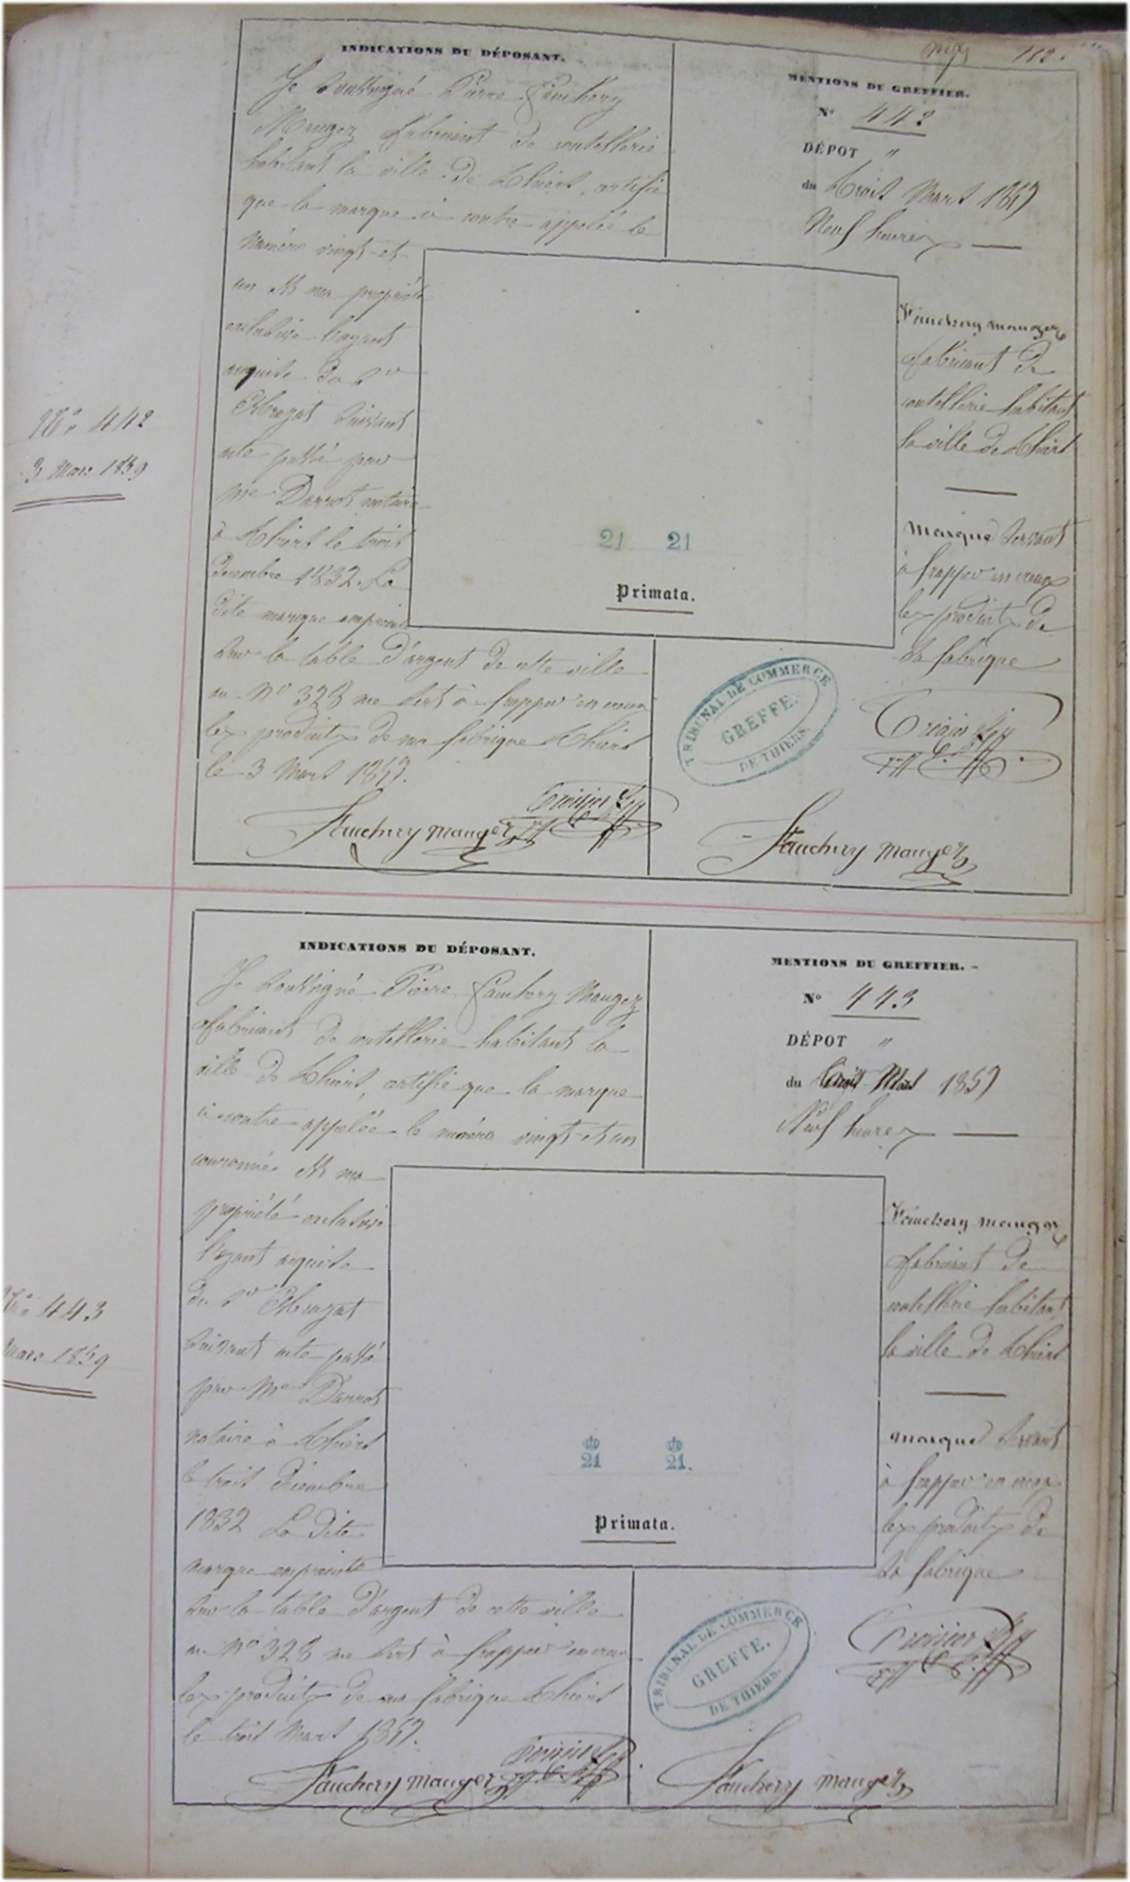 112.
INDICATIONS DU DÉPOSANT.
Je soussigné Pierre Fauchery
Mauger fabricant de coutellerie
habitant la ville de Thiers, certifie
que la marque ci contre appelée le
numéro vingt et
un est ma propriété
exclusive l'ayant
acquise du Sr
suivant
acte passé par
Me Darrot notaire
à Thiers le trois
décembre 1832. La
dite marque empreinte
sur la table d'argent de cette ville
au No 328 me sert à frapper en creux
les produits de ma fabrique Thiers
le 3 Mars 1859.
Fauchery Mauger
MENTIONS DU GREFFIER.
No 442
DÉPOT "
du trois Mars 1859
Neuf heures
Fauchery Mauger
fabricant de
coutellerie habitant
la ville de Thiers
Marque servant
à frapper en creux
les produits de
sa fabrique
Fauchery Mauger
21 21
Primata.
TRIBUNAL DE COMMERCE
GREFFE.
DE THIERS.
No 442
3 Mars 1859
INDICATIONS DU DÉPOSANT.
Je soussigné Pierre Fauchery Mauger
fabricant de coutellerie habitant la
ville de Thiers, certifie que la marque
ci contre appelée le numéro vingt et un
couronné est ma
propriété exclusive
l'ayant acquise
du Sr
suivant acte passé
par Me Darrot
notaire à Thiers
le trois décembre
1832 La dite
marque empreinte
sur la table d'argent de cette ville
au No 328 me sert à frapper en creux
les produits de ma fabrique Thiers
le trois Mars 1859.
Fauchery Mauger
MENTIONS DU GREFFIER.
No 443
DÉPOT "
du trois Mars 1859
Neuf heures
Fauchery Mauger
fabricant de
coutellerie habitant
la ville de Thiers
Marque servant
à frapper en creux
les produits de
sa fabrique
Fauchery Mauger
21 21.
Primata.
TRIBUNAL DE COMMERCE
GREFFE.
DE THIERS.
No 443
Mars 1859